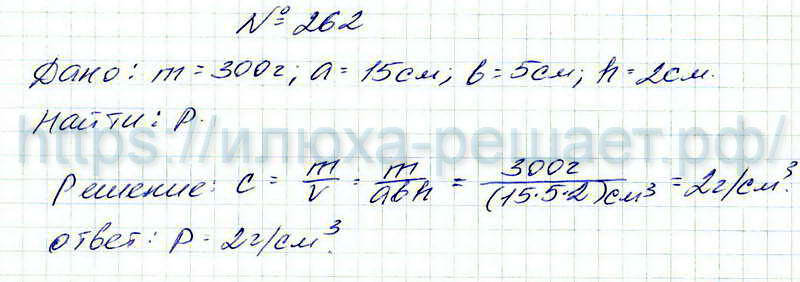 № 262
Дано: m = 300г; a = 15см; b = 5см; h = 2см.
Найти: P.
https://илюха.решает.рф/
Решение: C = m/V = m/abh = 300г/(15·5·2)см³ = 2г/см³.
ответ: P = 2г/см³.